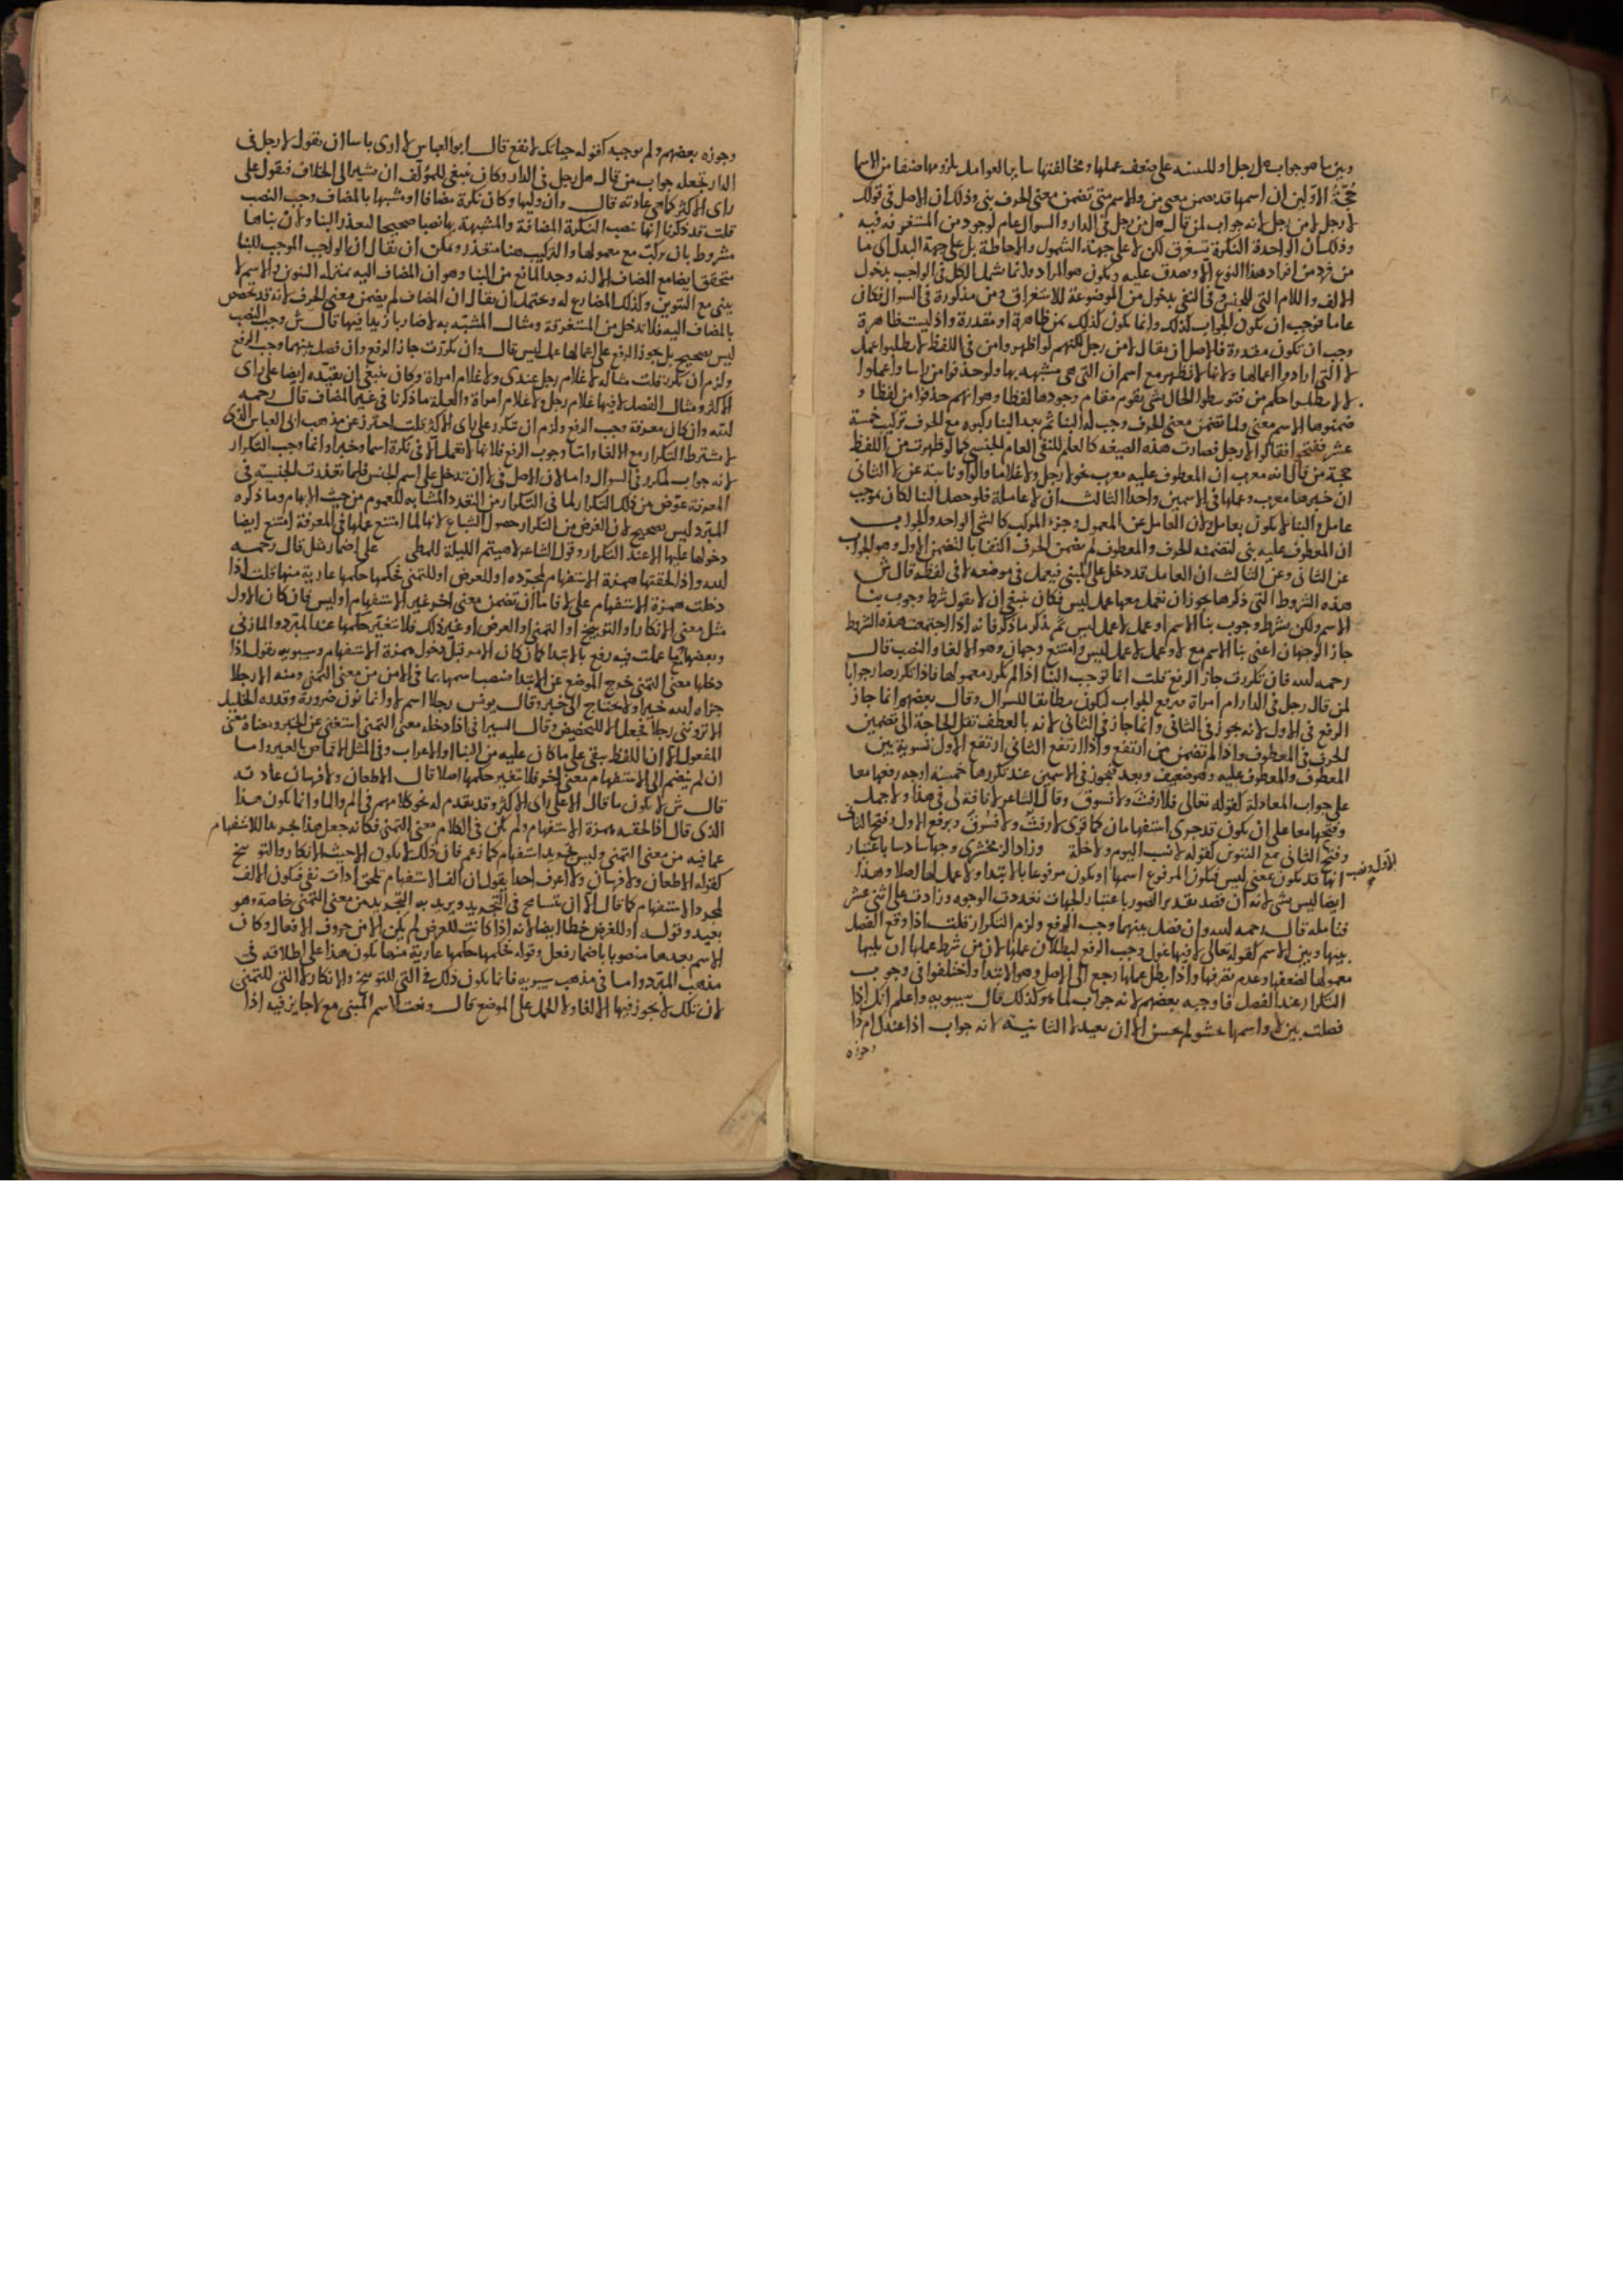 وبين ما هو جواب هل رجل او للتنبيه على ضعف عملها ومخالفتها ساير العوامل بلزومها صنفا من الاسما
حجة الاولين ان اسمها قد تضمن معنى من والاسم متى تضمن معنى الحرف بني وذلك ان الاصل في قولك
لا رجل لا من رجل لانه جواب لمن قال هل من رجل في الدار والسوال عام لوجود من المستغرقة فيه
وذلك ان الواحدة النكرة تستغرق لكن لا على جهة الشمول والاحاطة بل على جهة البدل اى ما
من فرد من افراد هذا النوع الا ويصدق عليه ويكون هو المراد وانما شمل الكل في الواجب بدخول
الالف واللام التى للجنس وفى النفى بدخول من الموضوعة للاستغراق ومن مذكورة في السوال فكان
عاما فوجب ان يكون الجواب كذلك وانما يكون كذلك بمن ظاهرة او مقدرة واذ ليست ظاهرة
وجب ان تكون مقدرة فالاصل ان يقال لا من رجل لكنهم لو اظهروا من في اللفظ لابطلوا عمل
لا التى ارادوا اعمالها ولانها لا تظهر مع اسم ان التى هى مشبهة بها ولو حذفوا من راسا واعملوا
لا لابطلوا حكم من فتوسطوا الحال بشى يقوم مقام وجودها لفظا وهو انهم حذفوا من لفظا و
ضمنوها الاسم معنى ولما تضمن معنى الحرف وجب له البنا ثم بعد البنا ركبوه مع الحرف تركيب خمسة
عشر ففتحوا فقالوا لا رجل فصارت هذه الصيغة كالعلم للنفى العام الجنسى كما لو ظهرت من في اللفظ
حجة من قال انه معرب ان المعطوف عليه معرب نحو لا رجل وغلاما والواو نائبة عن لا الثانى
ان خبرها معرب وعملها في الاسمين واحد الثالث ان لا عاملة فلو حصل البنا لكان بموجب
عامل والبنا لا يكون بعامل ولان العامل غير المعمول وجزء المركب كالشى الواحد والجواب
ان المعطوف عليه بنى لتضمنه الحرف والمعطوف لم يتضمن الحرف اكتفا بالتضمن الاول وهو الجواب
عن الثانى وعن الثالث ان العامل قد دخل على المبنى فيعمل في موضعه لا في لفظه قال ش
هذه الشروط التى ذكرها يجوز ان تعمل معها عمل ليس فكان ينبغى ان لا يقول شرط وجوب بنا
الاسم ولكن بشرط وجوب بنا الاسم او عمل لا عمل ليس ثم يذكر ما ذكر فانه اذا اجتمعت هذه الشروط
جاز الوجهان اعنى بنا الاسم مع لا وعمل لا عمل ليس وامتنع وجهان وهو الالغا والنصب قال
رحمه الله فان تكررت جاز الرفع قلت انما توجب البنا اذا لم يكرر معمولها فاذا تكرر صار جوابا
لمن قال رجل في الدار ام امراة فيرفع الجواب ليكون مطابقا للسوال وقال بعضهم انما جاز
الرفع في الاول لانه يجوز في الثانى وانما جاز في الثانى لانه بالعطف تقل الحاجة الى تضمين
الحرف في المعطوف واذا لم تضمن من ارتفع واذا ارتفع الثانى ارتفع الاول تسوية بين
المعطوف والمعطوف عليه وهو ضعيف وبعد فيجوز في الاسمين عند تكررها خمسة اوجه رفعها معا
على جواب المعادلة كقوله تعالى فلا رفث ولا فسوق وقال الشاعر لا ناقة لى في هذا ولا جمل
وفتحها معا على ان يكون قد جرى استفهامان كما قرى لا رفث ولا فسوق ويرفع الاول وفتح الثانى
وفتح الثانى مع التنوين كقوله لا نسب اليوم ولا خلة وزاد الزمخشرى وجها سادسا باعتبار
الاول ونصب
انها قد يكون بمعنى ليس فيكون المرفوع اسمها او يكون مرفوعا بالابتدا ولا عمل لها اصلا وهذا
ايضا ليس بشى لانه ان قصد تعديد الصور باعتبار الجهات تعددت الوجوه وزادت على اثنى عشر
فتامله قال رحمه الله وان فصل بينهما وجب الرفع ولزم التكرار قلت اذا وقع الفصل
بينها وبين الاسم كقوله تعالى لا فيها غول وجب الرفع لبطلان عملها لان من شرط عملها ان يليها
معمولها لضعفها وعدم تصرفها واذا بطل عملها رجع الى الاصل وهو الابتدا واختلفوا في وجوب
التكرار عند الفصل فاوجبه بعضهم لانه جواب لما هو كذلك قال سيبويه واعلم انك اذا
فصلت بين لا واسمها بحشو لم يحسن الا ان تعيد لا الثانية لانه جواب اذا عندك ام ذا
وجوزه
وجوزه بعضهم ولم يوجبه كقوله حياتك لا نفع قال ابو العباس لا ارى باسا ان تقول لا رجل في
الدار تجعله جواب من قال هل رجل في الدار وكان ينبغى للمولف ان يشير الى الخلاف فيقول على
راى الاكثر كما هى عادته قال وان وليها وكان نكرة مضافا او مشبها بالمضاف وجب النصب
قلت قد ذكرنا انها تنصب النكرة المضافة والمشبهة بها نصبا صحيحا لتعذر البنا ولان بناها
مشروط بان تركب مع معمولها والتركيب هنا متعذر ويمكن ان يقال ان الواجب الموجب للبنا
متحقق ايضا مع المضاف الا انه وجد المانع من البنا وهو ان المضاف اليه بمنزلة التنوين والاسم لا
يبنى مع التنوين وكذلك المضارع له ويحتمل ان يقال ان المضاف لم يتضمن معنى الحرف لانه قد تخصص
بالمضاف اليه فلا تدخل من المستغرقة ومثال المشبه به لا ضاربا زيدا فيها قال ش وجب النصب
ليس بصحيح بل يجوز الرفع على اعمالها عمل ليس قال وان تكررت جاز الرفع وان فصل بينهما وجب الرفع
ولزم ان تكرر قلت مثاله لا غلام رجل عندى ولا غلام امراة وكان ينبغى ان يقيده ايضا على راى
الاكثر ومثال الفصل لا فيها غلام رجل ولا غلام امراة والعلة ما ذكرنا في غير المضاف قال رحمه
الله وان كان معرفة وجب الرفع ولزم ان تتكرر على راى الاكثر قلت احترز عن مذهب ابى العباس الذى
لا يشترط التكرار مع الالغا واما وجوب الرفع فلانها لا تعمل الا في نكرة اسما وخبرا وانما وجب التكرار
لانه جواب لمكرر في السوال واما لان الاصل في لا ان تدخل على اسم الجنس فلما تعذرت الجنسية في
المعرفة عوض من ذلك التكرار لما في التكرار من التعدد المشابه للعموم من حيث الابهام وما ذكره
المبرد ليس بصحيح لان الغرض من التكرار حصول الشياع لانها لما امتنع عملها في المعرفة امتنع ايضا
دخولها عليها الا عند التكرار وقول الشاعر لا هيثم الليلة للمطى على اضمار مثل قال رحمه
الله واذا لحقتها همزة الاستفهام لمجرده او للعرض او للتمنى فحكمها حكمها عارية منها قلت اذا
دخلت همزة الاستفهام على لا فاما ان تضمن معنى اخر غير الاستفهام او ليس فان كان الاول
مثل معنى الانكار او التوبيخ او التمنى او العرض او غير ذلك فلا يتغير حكمها عند المبرد والمازنى
وبعضها مما عملت فيه رفع بالابتدا كما كان الامر قبل دخول همزة الاستفهام وسيبويه يقول اذا
دخلها معنى التمنى خرج الموضع عن الابتدا منصبا اسمها بما في الا من من معنى التمنى ومنه الا رجلا
جزاه الله خيرا ولا يحتاج الى خبر وقال يونس رجلا اسم لا وانما نون ضرورة وقدره الخليل
الا تروننى رجلا فجعل الا للتحضيض وقال السيرافى اذا دخله معنى التمنى استغنى عن الخبر ومعناه معنى
المفعول الا ان اللفظ يبقى على ما كان عليه من البنا والاعراب وفى المثل الا قماص بالعير واما
ان لم ينضم الى الاستفهام معنى اخر فلا تغير حكمها اصلا قال الا طعان ولا فرسان عادية
قال ش لا يكون ما قال الا على راى الاكثر وقد تقدم له نحو كلامهم في الم والما وانما يكون هذا
الذى قال اذا لحقته همزة الاستفهام ولم يكن في الكلام معنى التمنى فكانه جعل هذا مجردا للاستفهام
عما فيه من معنى التمنى وليس تجريد استفهام كما زعم فان ذلك لا يكون الا حيث الانكار والتوبيخ
كقوله الا طعان ولا فرسان ولا اعرف احدا يقول ان الف الاستفهام تلحق ادات نفى فيكون الالف
لمجرد الاستفهام كما قال الا ان يتسامح في التجريد ويريد به التجريد من معنى التمنى خاصة وهو
بعيد وقوله او للعرض خطا ايضا لانه اذا كانت للعرض لم يكن الا من حروف الافعال وكان
الاسم بعدها منصوبا باضمار فعل وقوله حكمها حكمها عارية منها يكون هذا على اطلاقه في
مذهب المبرد واما في مذهب سيبويه فانما يكون ذلك في التى للتوبيخ والانكار لا التى للتمنى
لان تلك لا يجوز فيها الالغا ولا الحمل على الموضع قال ونعت الاسم المبنى مع لا جايز فيه اذا